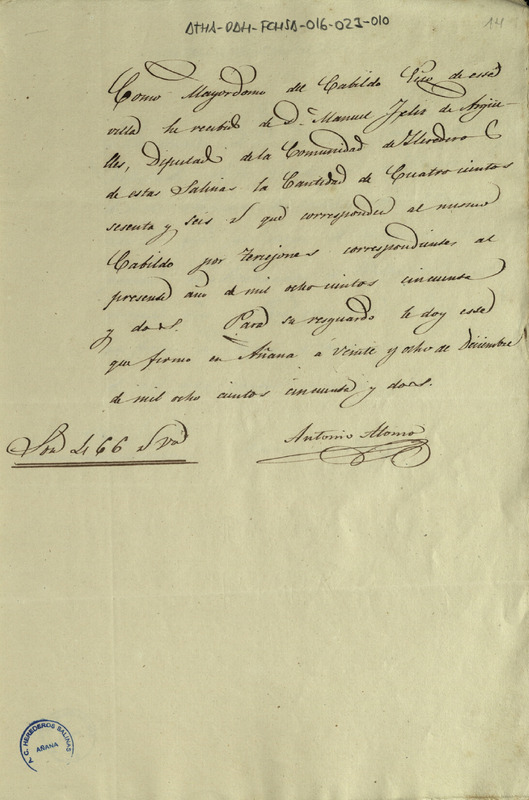 ATHA-DAH-FCHSA-016-023-010
14
Como Mayordomo del Cabildo Ecco de esta
villa he recibido de Dn Manuel Felix de Argüe-
lles, Deputado de la Comunidad de Herederos
de estas Salinas la Cantidad de Cuatrocientos
sesenta y seis rs que corresponden al mismo
Cabildo por correspondientes al
presente año de mil ocho cientos cincuenta
y dos. Para su resguardo le doy este
que firmo en Añana á veinte y ocho de Diciembre
de mil ocho cientos cincuenta y dos.
Son 466 rs vn
Antonio Alonso
T. C. HEREDEROS SALINAS
AÑANA